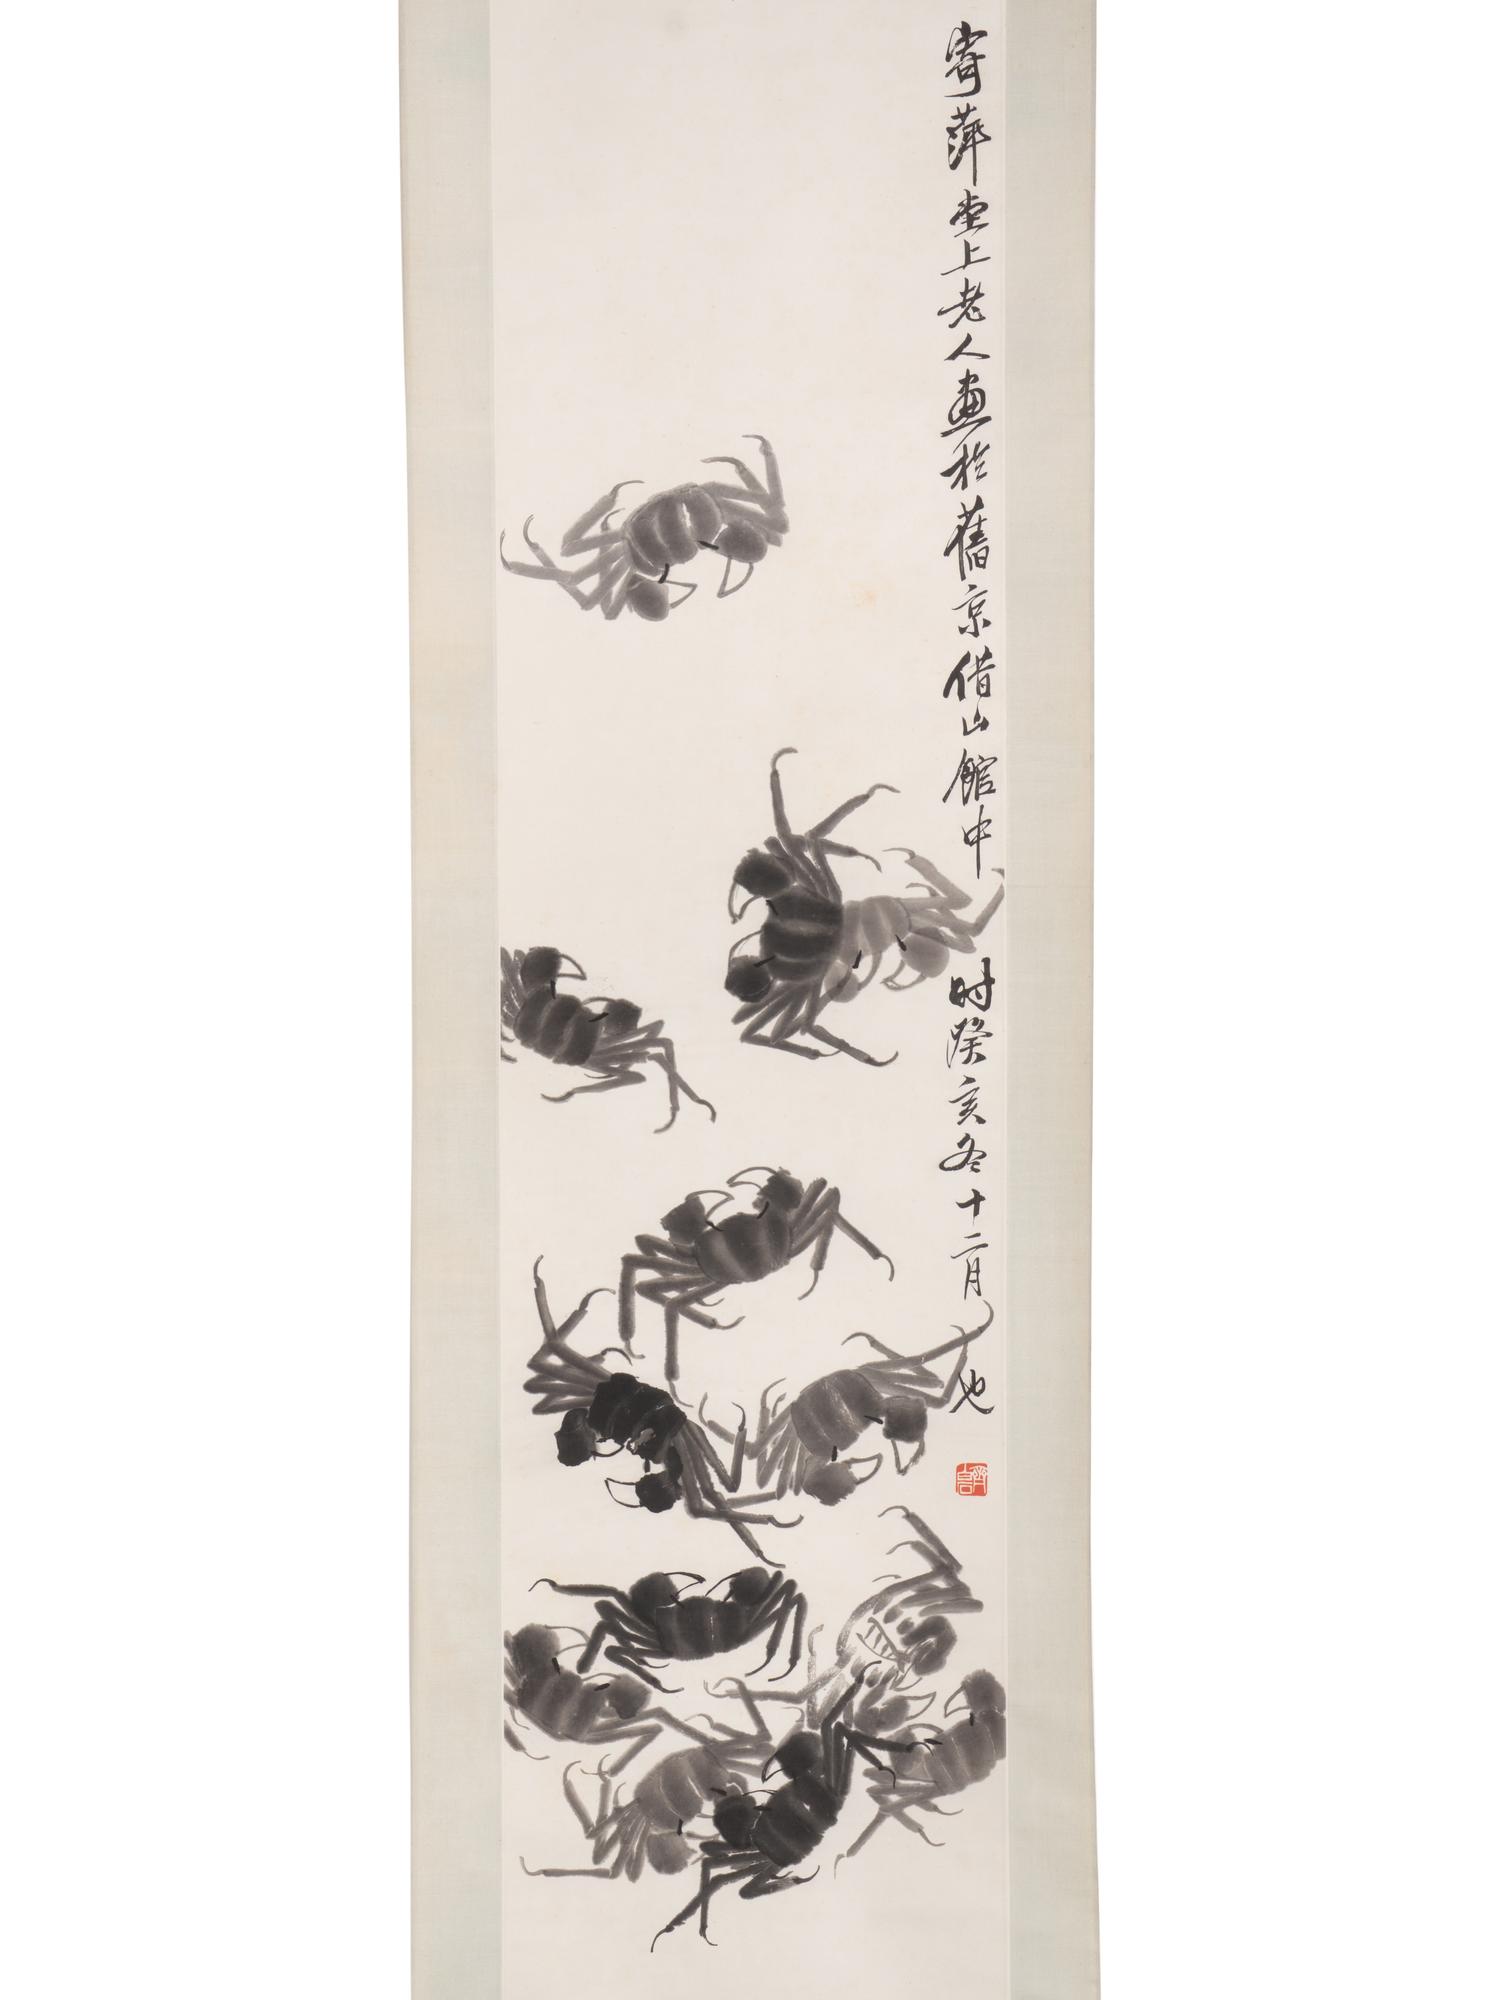 寄萍堂上老人畫於舊京借山館中 時癸亥冬十二月也
齊白石